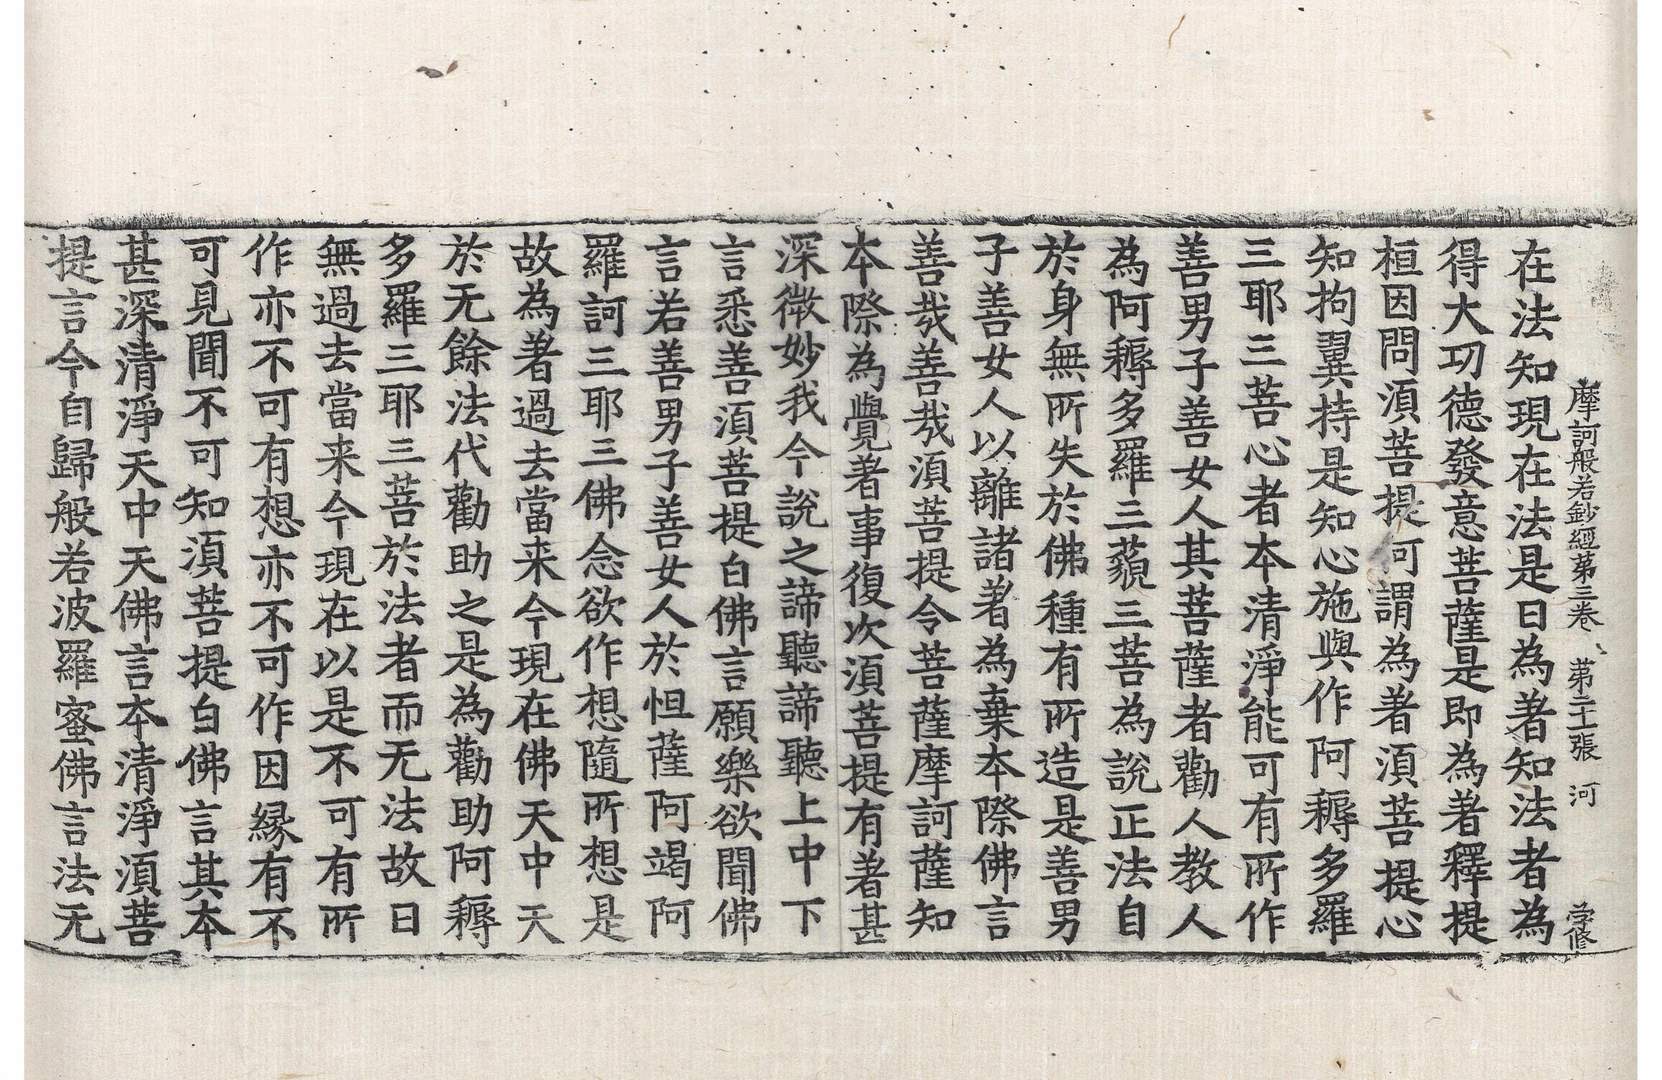 摩訶般若鈔經第三卷 第二十張 河 学修
在法知現在法是曰為著知法者為
得大功德發意菩薩是即為著釋提
桓因問湏菩提何謂為著湏菩提心
知拘翼持是知心施與作阿耨多羅
三耶三菩心者本清淨能可有所作
善男子善女人其菩薩者勸人教人
為阿耨多羅三藐三菩為說正法自
於身無所失於佛種有所造是善男
子善女人以離諸著為棄本際佛言
善哉善哉湏菩提令菩薩摩訶薩知
本際為覺著事復次湏菩提有著甚
深微妙我今說之諦聽諦聽上中下
言悉善湏菩提白佛言願樂欲聞佛
言若善男子善女人於怛薩阿竭阿
羅訶三耶三佛念欲作想隨所想是
故為著過去當来今現在佛天中天
於无餘法代勸助之是為勸助阿耨
多羅三耶三菩於法者而无法故曰
無過去當来今現在以是不可有所
作亦不可有想亦不可作因縁有不
可見聞不可知湏菩提白佛言其本
甚深清淨天中天佛言本清淨湏菩
提言今自歸般若波羅蜜佛言法无